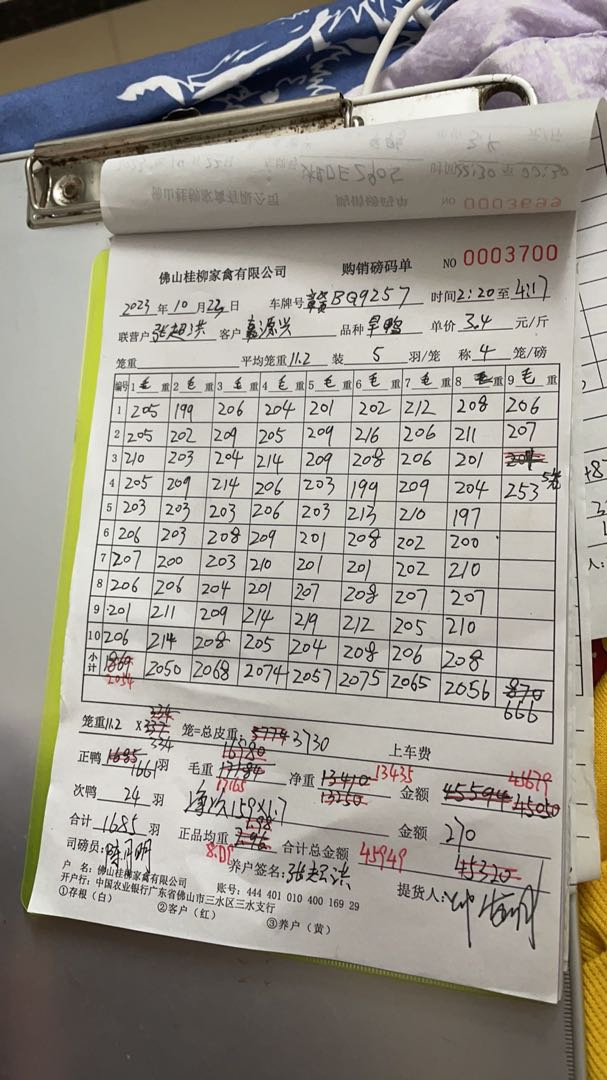 佛山桂柳家禽有限公司 购销磅码单 NO 0003700
2023年10月23日 车牌号 赣BQ9257 时间2:20至4:17
联营户 张超洪 客户 源兴 品种 旱鸭 单价 3.4 元/斤
笼重 平均笼重11.2 装 5 羽/笼 称 4 笼/磅
编号 1 毛重 2 毛重 3 毛重 4 毛重 5 毛重 6 毛重 7 毛重 8 毛重 9 毛重
1 205 199 206 204 201 202 212 208 206
2 205 202 209 205 209 216 206 211 207
3 210 203 204 214 209 208 206 201
4 205 209 214 206 203 199 209 204 253 5笼
5 203 203 203 206 203 213 210 197
6 206 203 208 209 201 208 202 200
7 207 200 203 210 201 201 202 210
8 206 206 204 201 207 208 207 207
9 201 211 209 214 219 212 205 210
10 206 214 208 205 204 208 206 208
小计 1869 2050 2068 2074 2057 2075 2065 2056 870
2054 666
笼重11.2 X 337 笼=总皮重: 3774 3730 上车费
334
334
正鸭 1685 羽 毛重 17184 净重 13410 13435 金额 45594 45679
1661 16980 17165 13250 45050
次鸭 24 羽 159×1.7 金额 270
合计 1685 羽 正品均重 7.96 合计总金额 45949 45320
7.98
8.09
司磅员: 养户签名: 张超洪 提货人:
户 名: 佛山桂柳家禽有限公司 账号: 444 401 010 400 169 29
开户行: 中国农业银行广东省佛山市三水区三水支行
①存根（白） ②客户（红） ③养户（黄）